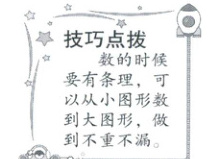 技巧点拨
数的时候
要有条理，可
以从小图形数
到大图形，做
到不重不漏。